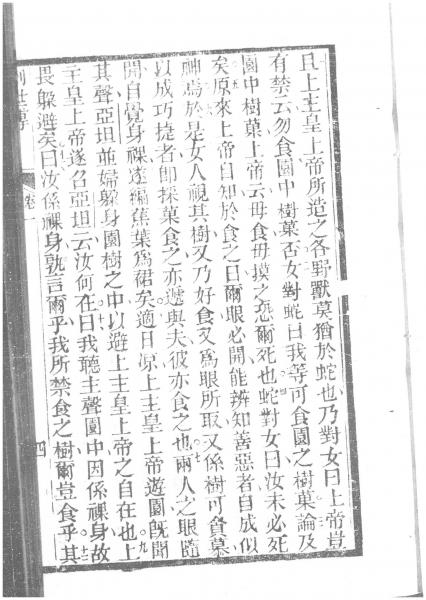 且上主皇上帝所造之各野獸莫猶於蛇也乃對女曰上帝豈
有禁云勿食園中樹菓否女對蛇曰我等可食園之樹菓論及
園中樹菓上帝云毋食毋摸之恐爾死也蛇對女曰汝未必死
矣原來上帝自知於食之日爾眼必開能辨知善惡者自成似
神焉於是女人視其樹又乃好食又爲眼所取又係樹可貪慕
以成巧捷者即採菓食之亦遞與夫彼亦食之也兩人之眼隨
開自覺身祼遂編蕉葉爲裙矣適日凉上主皇上帝遊園旣聞
其聲亞坦並婦躲身園樹之中以避上主皇上帝之自在也上
主皇上帝遂召亞坦云汝何在曰我聽主聲園中因係祼身故
畏躲避矣曰汝係祼身孰言爾乎我所禁食之樹爾豈食乎其
創世傳
卷一
四